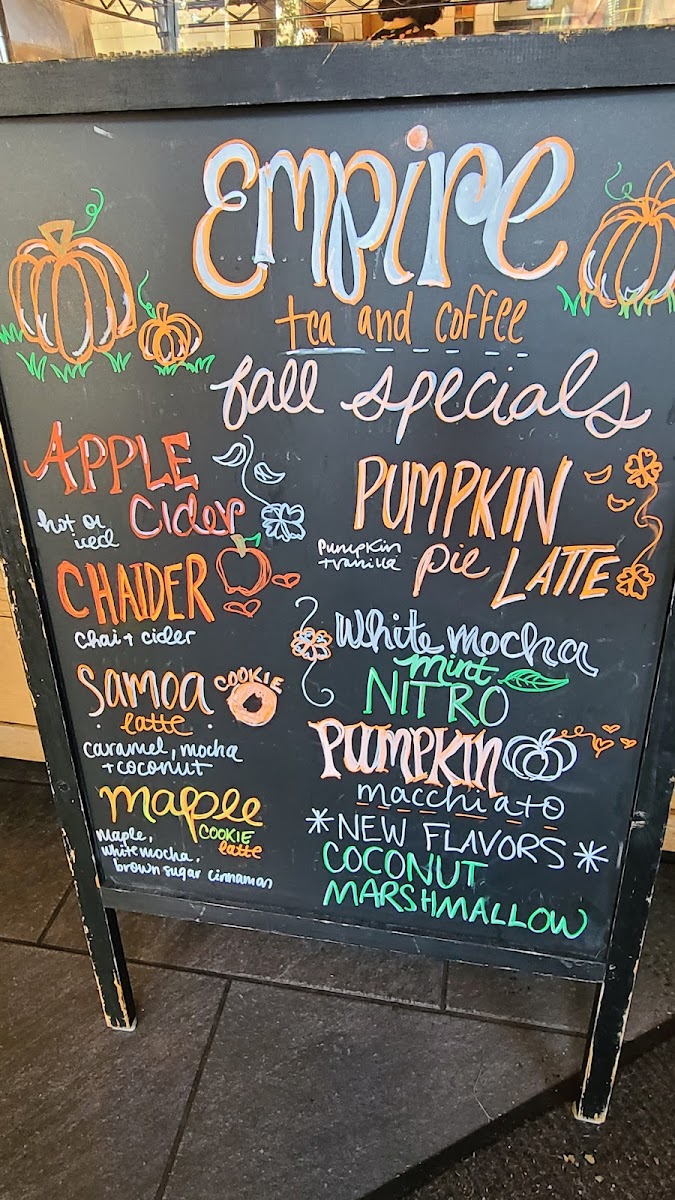 Empire
tea and coffee
fall specials
APPLE
Cider
hot or
iced
CHAIDER
chai + cider
Samoa
COOKIE
latte
caramel, mocha
+ coconut
maple
COOKIE
latte
maple,
white mocha,
brown sugar cinnamon
PUMPKIN
pie LATTE
Pumpkin
+ vanilla
White mocha
mint
NITRO
PUMPKIN
macchiato
*NEW FLAVORS*
COCONUT
MARSHMALLOW